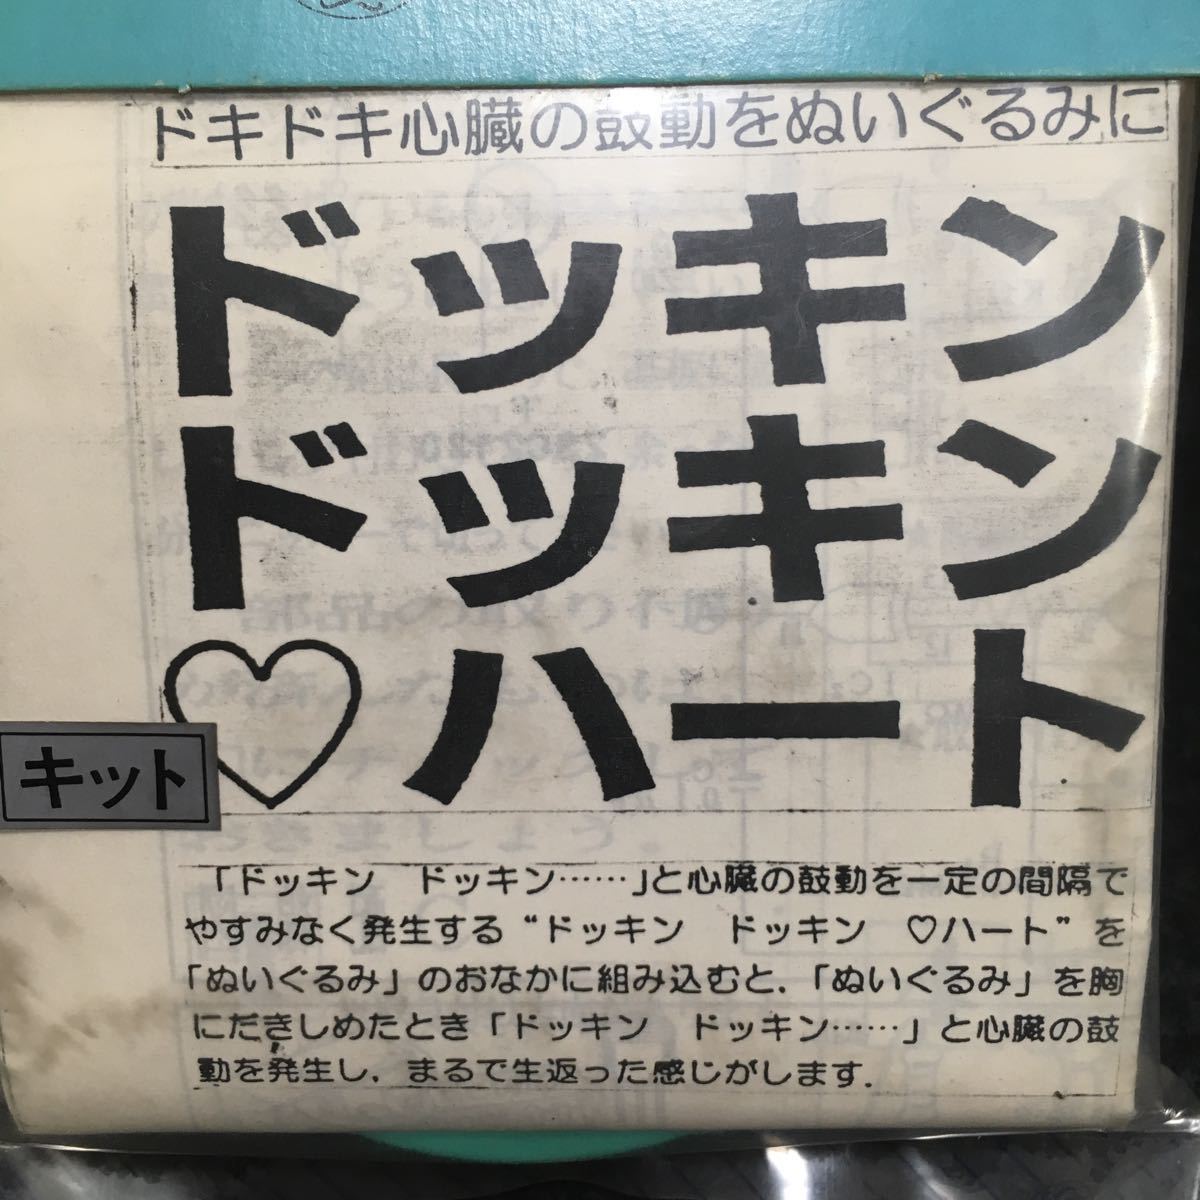 ドキドキ心臓の鼓動をぬいぐるみに
ドッキン
ドッキン
♡ハート
キット
「ドッキン　ドッキン……」と心臓の鼓動を一定の間隔で
やすみなく発生する“ドッキン　ドッキン　♡ハート”を
「ぬいぐるみ」のおなかに組み込むと，「ぬいぐるみ」を胸
にだきしめたとき「ドッキン　ドッキン……」と心臓の鼓
動を発生し，まるで生返った感じがします．